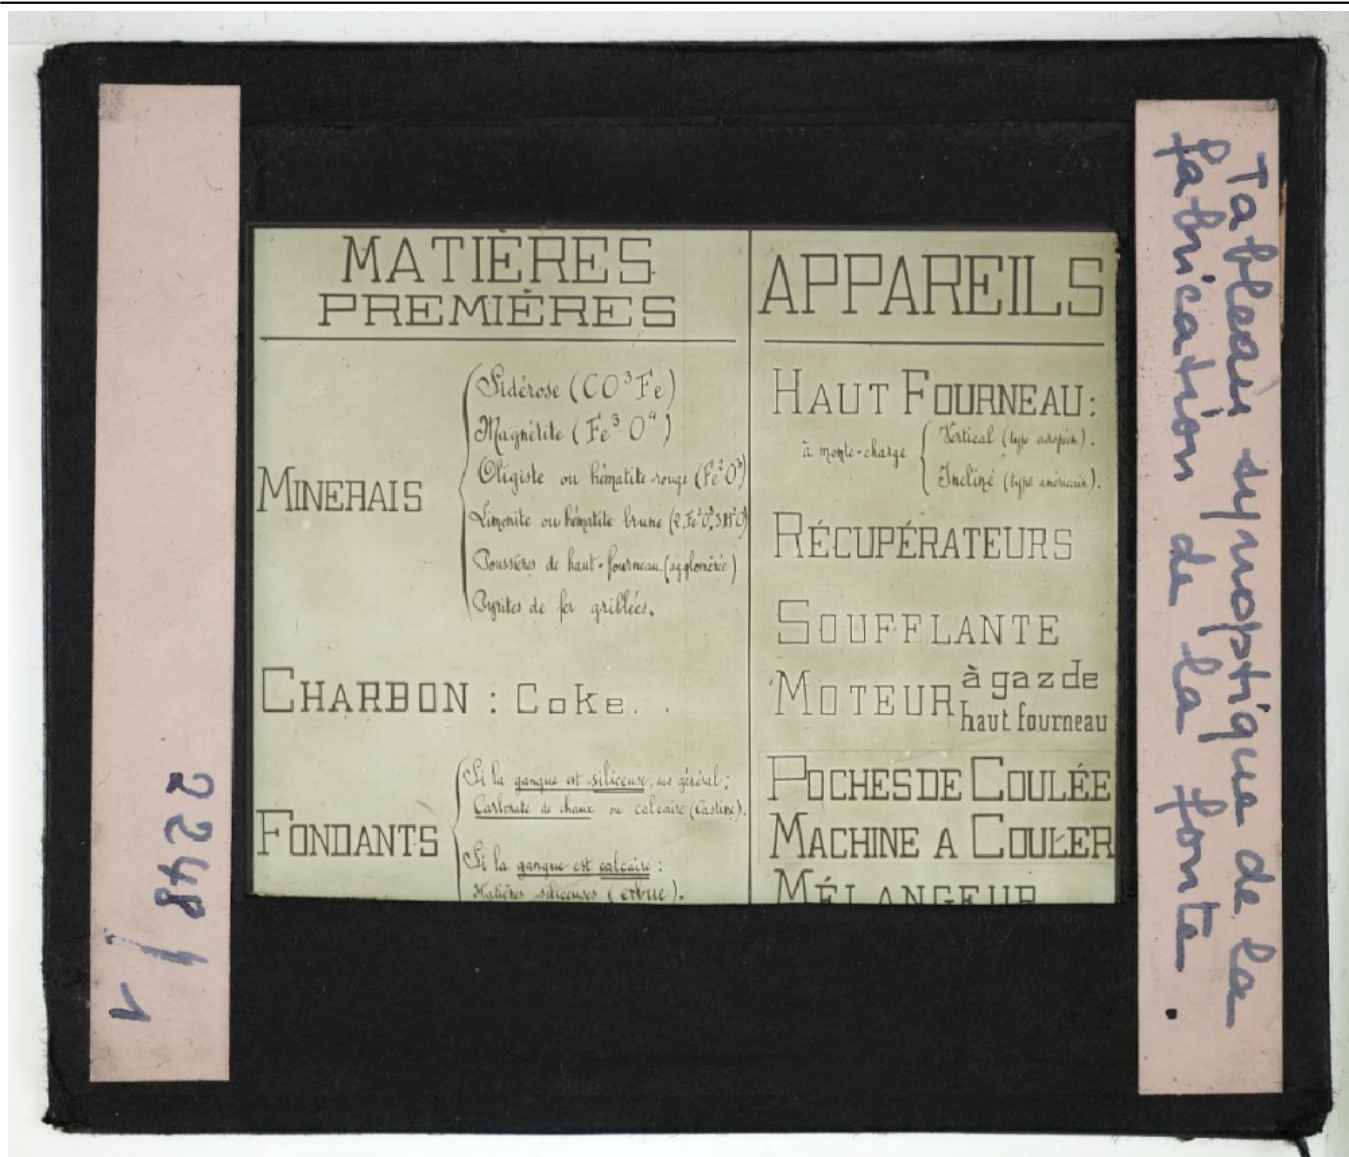 22248/1
MATIÈRES
PREMIÈRES
MINERAIS
Sidérose (CO³Fe)
Magnétite (Fe³O⁴)
Oligiste ou hématite rouge (Fe²O³)
Limonite ou hématite brune (2.Fe²O³,3H²O)
Poussières de haut-fourneau.(agglomérée)
Pyrites de fer grillées.
CHARBON : Coke.
FONDANTS
Si la gangue est siliceuse, cas général :
Carbonate de chaux ou calcaire (Castine).
Si la gangue est calcaire :
Matières siliceuses (erbue).
APPAREILS
HAUT FOURNEAU :
à monte-charge
Vertical (type européen).
Incliné (type américain).
RÉCUPÉRATEURS
SOUFFLANTE
MOTEUR à gaz de
haut fourneau
POCHES DE COULÉE
MACHINE A COULER
MÉLANGEUR
Tableau synoptique de la
fabrication de la fonte.